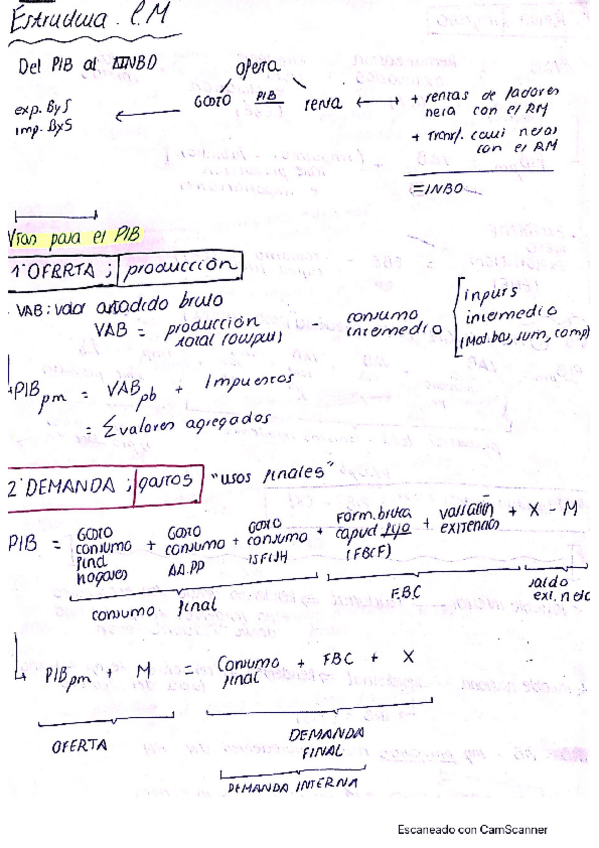 Estructura. C.M
Del PIB al INBD
oferta
GASTO PIB renta ⟷ + rentas de factores
neta con el RM
exp. ByS
imp. ByS
+ Transf. netas
con el RM
= INBD
Vías para el PIB
1º OFERTA ; producción
VAB: valor añadido bruto
VAB = producción total (output) - consumo intermedio
inputs
intermedio
(Mat. bas, sum, comp)
PIBpm = VABpb + Impuestos
= Σ valores agregados
2º DEMANDA ; gastos "usos finales"
PIB = Gasto consumo final hogares + Gasto consumo AA.PP + Gasto consumo ISFLSH + Form. bruta capital fijo (FBCF) + variación existencias + X - M
consumo final
FBC
saldo ext. neto
PIBpm + M = Consumo final + FBC + X
OFERTA
DEMANDA
FINAL
DEMANDA INTERNA
Escaneado con CamScanner